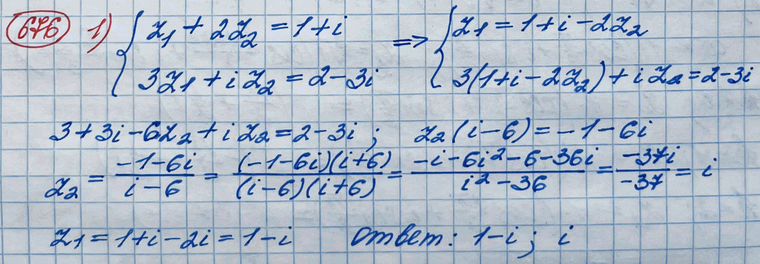 676 1) { z₁ + 2z₂ = 1+i => { z₁ = 1+i-2z₂
3z₁ + i z₂ = 2-3i 3(1+i-2z₂) + i z₂ = 2-3i
3+3i-6z₂+i z₂ = 2-3i ; z₂(i-6) = -1-6i
z₂ = (-1-6i)/(i-6) = ((-1-6i)(i+6))/((i-6)(i+6)) = (-i-6i²-6-36i)/(i²-36) = (-37i)/(-37) = i
z₁ = 1+i-2i = 1-i ответ: 1-i ; i